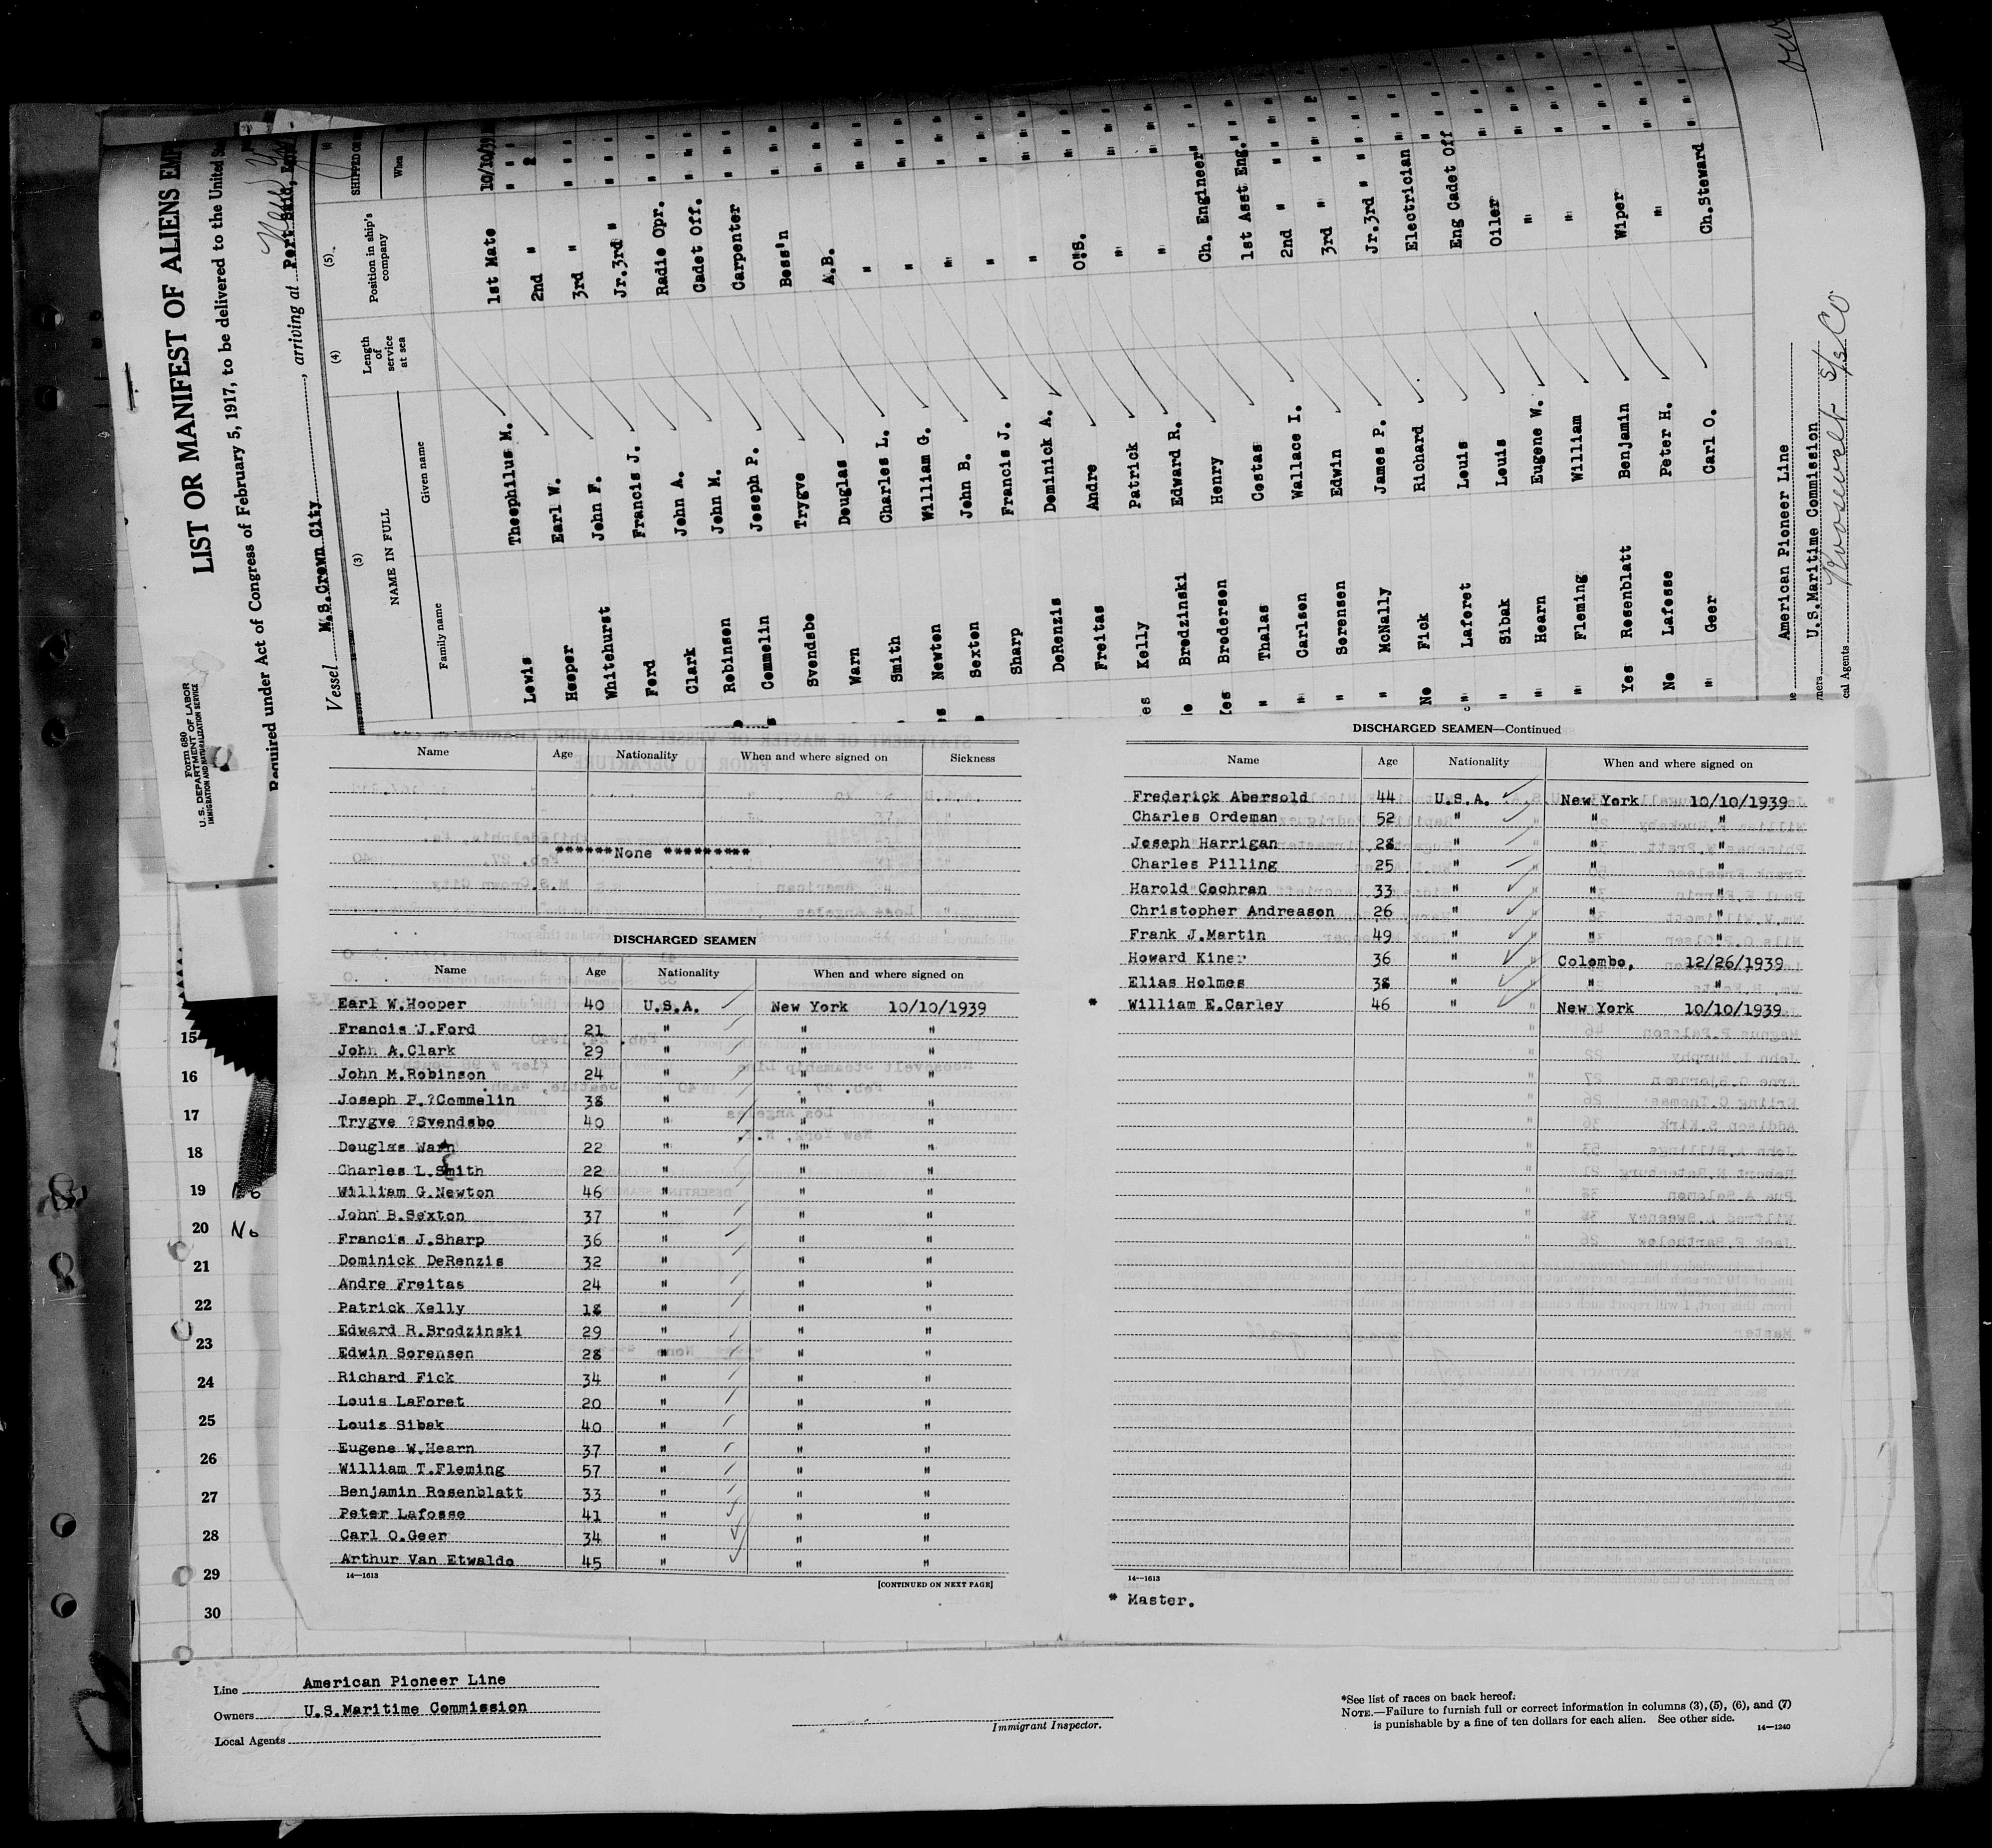 Form 680
U. S. DEPARTMENT OF LABOR
IMMIGRATION AND NATURALIZATION SERVICE
LIST OR MANIFEST OF ALIENS
Required under Act of Congress of February 5, 1917, to be delivered to the United
Vessel M.S.Crown City, arriving at Port Said,
New
(3) (4) (5)
NAME IN FULL Length of service at sea Position in ship's company SHIPPED
Family name Given name When
Lewis Theophilus M. 1st Mate 10/10/39
Hooper Earl W. 2nd "
Whitehurst John F. 3rd " "
Ford Francis J. Jr.3rd " "
Clark John A. Radio Opr. "
Robinson John M. Cadet Off. "
Commelin Joseph P. Carpenter "
Svendsbo Trygve Bos'n "
Warn Douglas A.B. "
Smith Charles L. " "
Newton William G. " "
Sexton John B. " "
Sharp Francis J. " "
DeRenzis Dominick A. " "
Freitas Andre O.S. "
Kelly Patrick " "
Brodzinski Edward R. " "
Brederson Henry Ch. Engineer "
" Thalas Costas 1st Asst Eng. "
" Carlson Wallace I. 2nd " "
" Sorensen Edwin 3rd " "
" McNally James P. Jr.3rd " "
No Fick Richard Electrician "
" Laforet Louis Eng Cadet Off "
" Sibak Louis Oiler "
" Hearn Eugene W. " "
" Fleming William " "
Yes Rosenblatt Benjamin Wiper "
No Lafosse Peter H. " "
" Geer Carl O. Ch.Steward "
American Pioneer Line
U.S.Maritime Commission
cal Agents Roosevelt S/S Co
Name Age Nationality When and where signed on Sickness
*******None **********
DISCHARGED SEAMEN
Name Age Nationality When and where signed on
Earl W.Hooper 40 U.S.A. New York 10/10/1939
Francis J.Ford 21 " " "
John A.Clark 29 " " "
John M.Robinson 24 " " "
Joseph P.?Commelin 38 " " "
Trygve ?Svendsbo 40 " " "
Douglas Warn 22 " " "
Charles L.Smith 22 " " "
William G.Newton 46 " " "
John B.Sexton 37 " " "
Francis J.Sharp 36 " " "
Dominick DeRenzis 32 " " "
Andre Freitas 24 " " "
Patrick Kelly 18 " " "
Edward R.Brodzinski 29 " " "
Edwin Sorensen 28 " " "
Richard Fick 34 " " "
Louis LaForet 20 " " "
Louis Sibak 40 " " "
Eugene W.Hearn 37 " " "
William T.Fleming 57 " " "
Benjamin Rosenblatt 33 " " "
Peter Lafosse 41 " " "
Carl O.Geer 34 " " "
Arthur Van Etwaldo 45 " " "
14—1613
[CONTINUED ON NEXT PAGE]
DISCHARGED SEAMEN—Continued
Name Age Nationality When and where signed on
Frederick Abersold 44 U.S.A. New York 10/10/1939
Charles Ordeman 52 " " "
Joseph Harrigan 28 " " "
Charles Pilling 25 " " "
Harold Cochran 33 " " "
Christopher Andreason 26 " " "
Frank J.Martin 49 " " "
Howard Kiner 36 " Colombo, 12/26/1939
Elias Holmes 38 " " "
* William E.Carley 46 " New York 10/10/1939
14—1613
* Master.
15
16
17
18
19 No
20 No
21
22
23
24
25
26
27
28
29
30
Line American Pioneer Line
Owners U.S.Maritime Commission
Local Agents
Immigrant Inspector.
*See list of races on back hereof.
NOTE.—Failure to furnish full or correct information in columns (3), (5), (6), and (7)
is punishable by a fine of ten dollars for each alien. See other side.
14—1240